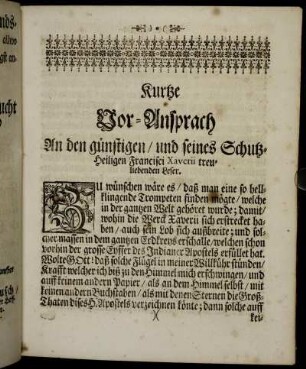 nds-
Kurtze
Vor-Ansprach
An den günstigen / und seines Schutz-
Heiligen Francisci Xaverii treu-
liebenden Leser.
ZU wünschen wäre es / daß man eine so hell-
klingende Trompeten finden mögte / welche
in der gantzen Welt gehöret wurde ; damit /
wohin die Werck Xaverii sich erstrecket ha-
ben / auch sein Lob sich außbreite ; und sol-
cher massen in dem gantzen Erdkreyß erschalle / welchen schon
vorhin der grosse Eyffer des Indianer Apostels erfüllet hat.
Wolte GOtt : daß solche Flügel in meiner Willkühr stünden /
Krafft welcher ich biß zu den Himmel mich erschwingen / und
auff keinem andern Papier / als an dem Himmel selbst / mit
keinen andern Buchstaben / als mit denen Sternen die Groß-
Thaten dises H. Apostels verzeichnen könte ; dann solche auff
kei-